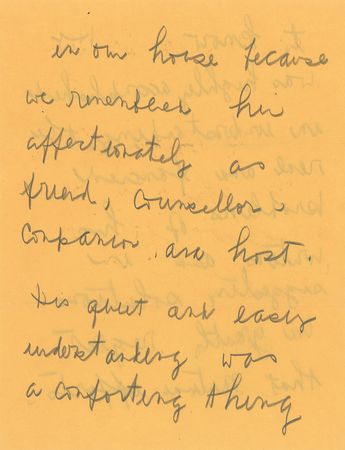 in our house because
we remember him
affectionately as
friend, Counsellor,
Companion and host.
His quiet and easy
understanding was
a comforting thing